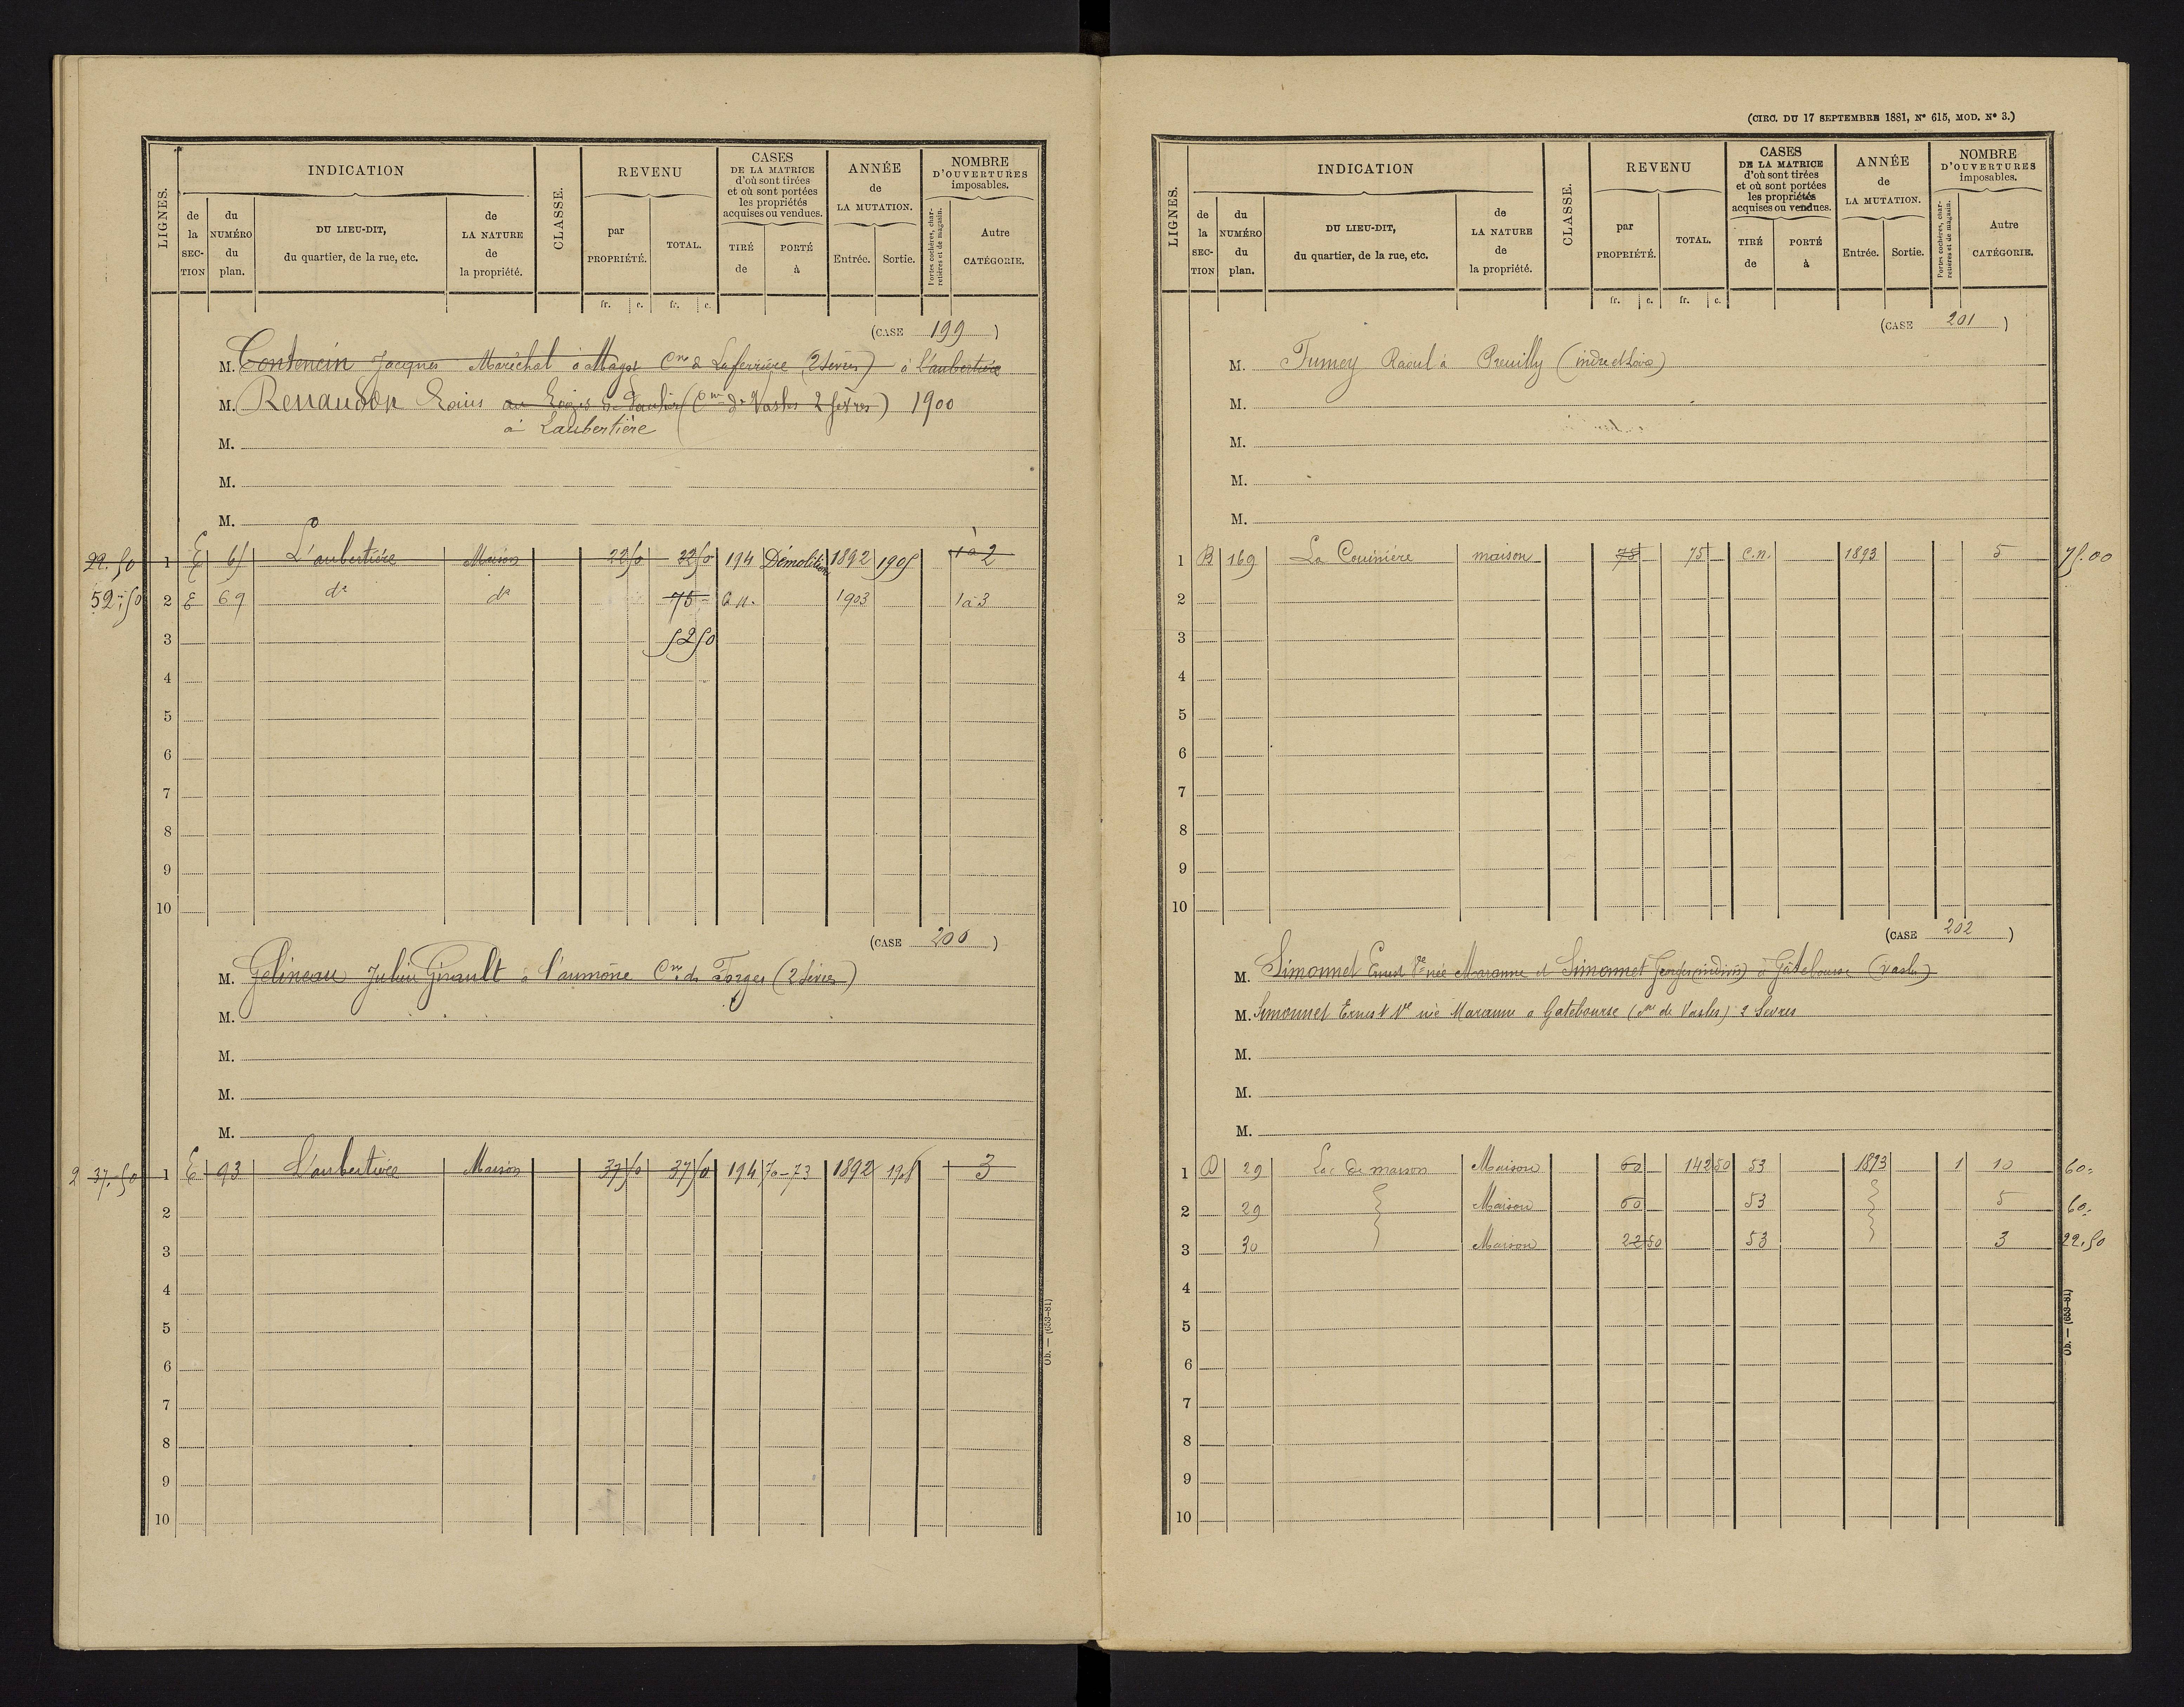 LIGNES.
INDICATION
de la SECTION
du NUMÉRO du plan.
DU LIEU-DIT, du quartier, de la rue, etc.
de LA NATURE de la propriété.
CLASSE.
REVENU
par PROPRIÉTÉ.
TOTAL.
CASES DE LA MATRICE d'où sont tirées et où sont portées les propriétés acquises ou vendues.
TIRÉ de
PORTÉ à
ANNÉE de LA MUTATION.
Entrée.
Sortie.
NOMBRE D'OUVERTURES imposables.
Portes cochères, charretières et de magasin.
Autre CATÉGORIE.
fr. c. fr. c.
(CASE 199)
M. Contencin Jacques Maréchal à Magot Cne de Laferrière (2 Sèvres) à l'aubertière
M. Renaudon Louis au Logis de (Cne de Vasles 2 Sèvres) 1900
à Laubertière
M.
M.
M.
22.50 1 E 65 L'aubertière Maison 22 50 22 50 194 Démolition 1892 1905 1 à 2
52.50 2 E 69 do do 75 - C.n. 1903 1 à 3
3 52 50
4
5
6
7
8
9
10
(CASE 200)
M. Gelineau Julien Girault à l'aumône Cne de Forges (2 Sèvres)
M.
M.
M.
M.
2 37.50 1 E 93 L'aubertière Maison 37 50 37 50 194 70-73 1892 1908 3
2
3
4
5
6
7
8
9
10
Ob. — (653-81)
(CIRC. DU 17 SEPTEMBRE 1881, N° 615, MOD. N° 3.)
LIGNES.
INDICATION
de la SECTION
du NUMÉRO du plan.
DU LIEU-DIT, du quartier, de la rue, etc.
de LA NATURE de la propriété.
CLASSE.
REVENU
par PROPRIÉTÉ.
TOTAL.
CASES DE LA MATRICE d'où sont tirées et où sont portées les propriétés acquises ou vendues.
TIRÉ de
PORTÉ à
ANNÉE de LA MUTATION.
Entrée.
Sortie.
NOMBRE D'OUVERTURES imposables.
Portes cochères, charretières et de magasin.
Autre CATÉGORIE.
fr. c. fr. c.
(CASE 201)
M. Fumey Raoul à Preuilly (indre et Loire)
M.
M.
M.
M.
1 B 169 La Couinière maison 75 75 - C.n. 1893 5 75.00
2
3
4
5
6
7
8
9
10
(CASE 202)
M. Simonnet Ernest Ve née Maranne et Simonnet Georges (indivis) à Gâtebourse (Vasles)
M. Simonnet Ernest Ve née Maranne a Gatebourse (Cne de Vasles) 2 Sevres
M.
M.
M.
1 D 29 Lac de maison Maison 60 142 50 53 1893 1 10 60.
2 29 Maison 60 53 5 60.
3 30 Maison 22 50 53 3 22.50
4
5
6
7
8
9
10
Ob. — (653-81)